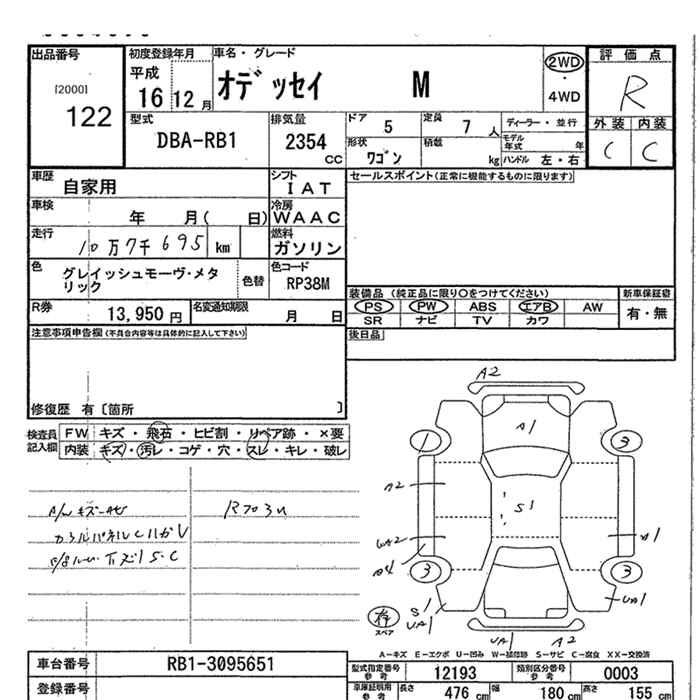 出品番号
[2000]
122
初度登録年月
平成
16 12 月
車名・グレード
オデッセイ M
2WD
・
4WD
評価点
R
外装 内装
C C
型式
DBA-RB1
排気量
2354
cc
ドア
5
定員
7 人
ディーラー・並行
形状
ワゴン
積載
kg
モデル年式 年
ハンドル 左・右
車歴
自家用
シフト
IAT
セールスポイント(正常に機能するものに限ります)
車検
年 月( 日)
冷房
WAAC
走行
10万7千695 km
燃料
ガソリン
色
グレイッシュモーヴ・メタリック
色替
色コード
RP38M
装備品 (純正品に限り○をつけてください)
PS PW ABS エアB AW
SR ナビ TV カワ
新車保証書
有・無
R券
13,950 円
名変通知期限
月 日
注意事項申告欄(不具合内容等は具体的に記入して下さい)
後日品
修復歴 有〔箇所 〕
検査員記入欄
FW キズ・飛石・ヒビ割・リペア跡・×要
内装 キズ・汚レ・コゲ・穴・スレ・キレ・破レ
A2
A1
1
3
A2
S1
A1
3
3
S1
UA1
UA1
UA1
A2
スペア
A-キズ E-エクボ U-凹み W-補修跡 S-サビ C-腐食 XX-交換済
車台番号
RB1-3095651
登録番号
型式指定番号 参考
12193
類別区分番号 参考
0003
車庫証明用 参考
長さ 476 cm
幅 180 cm
高さ 155 cm